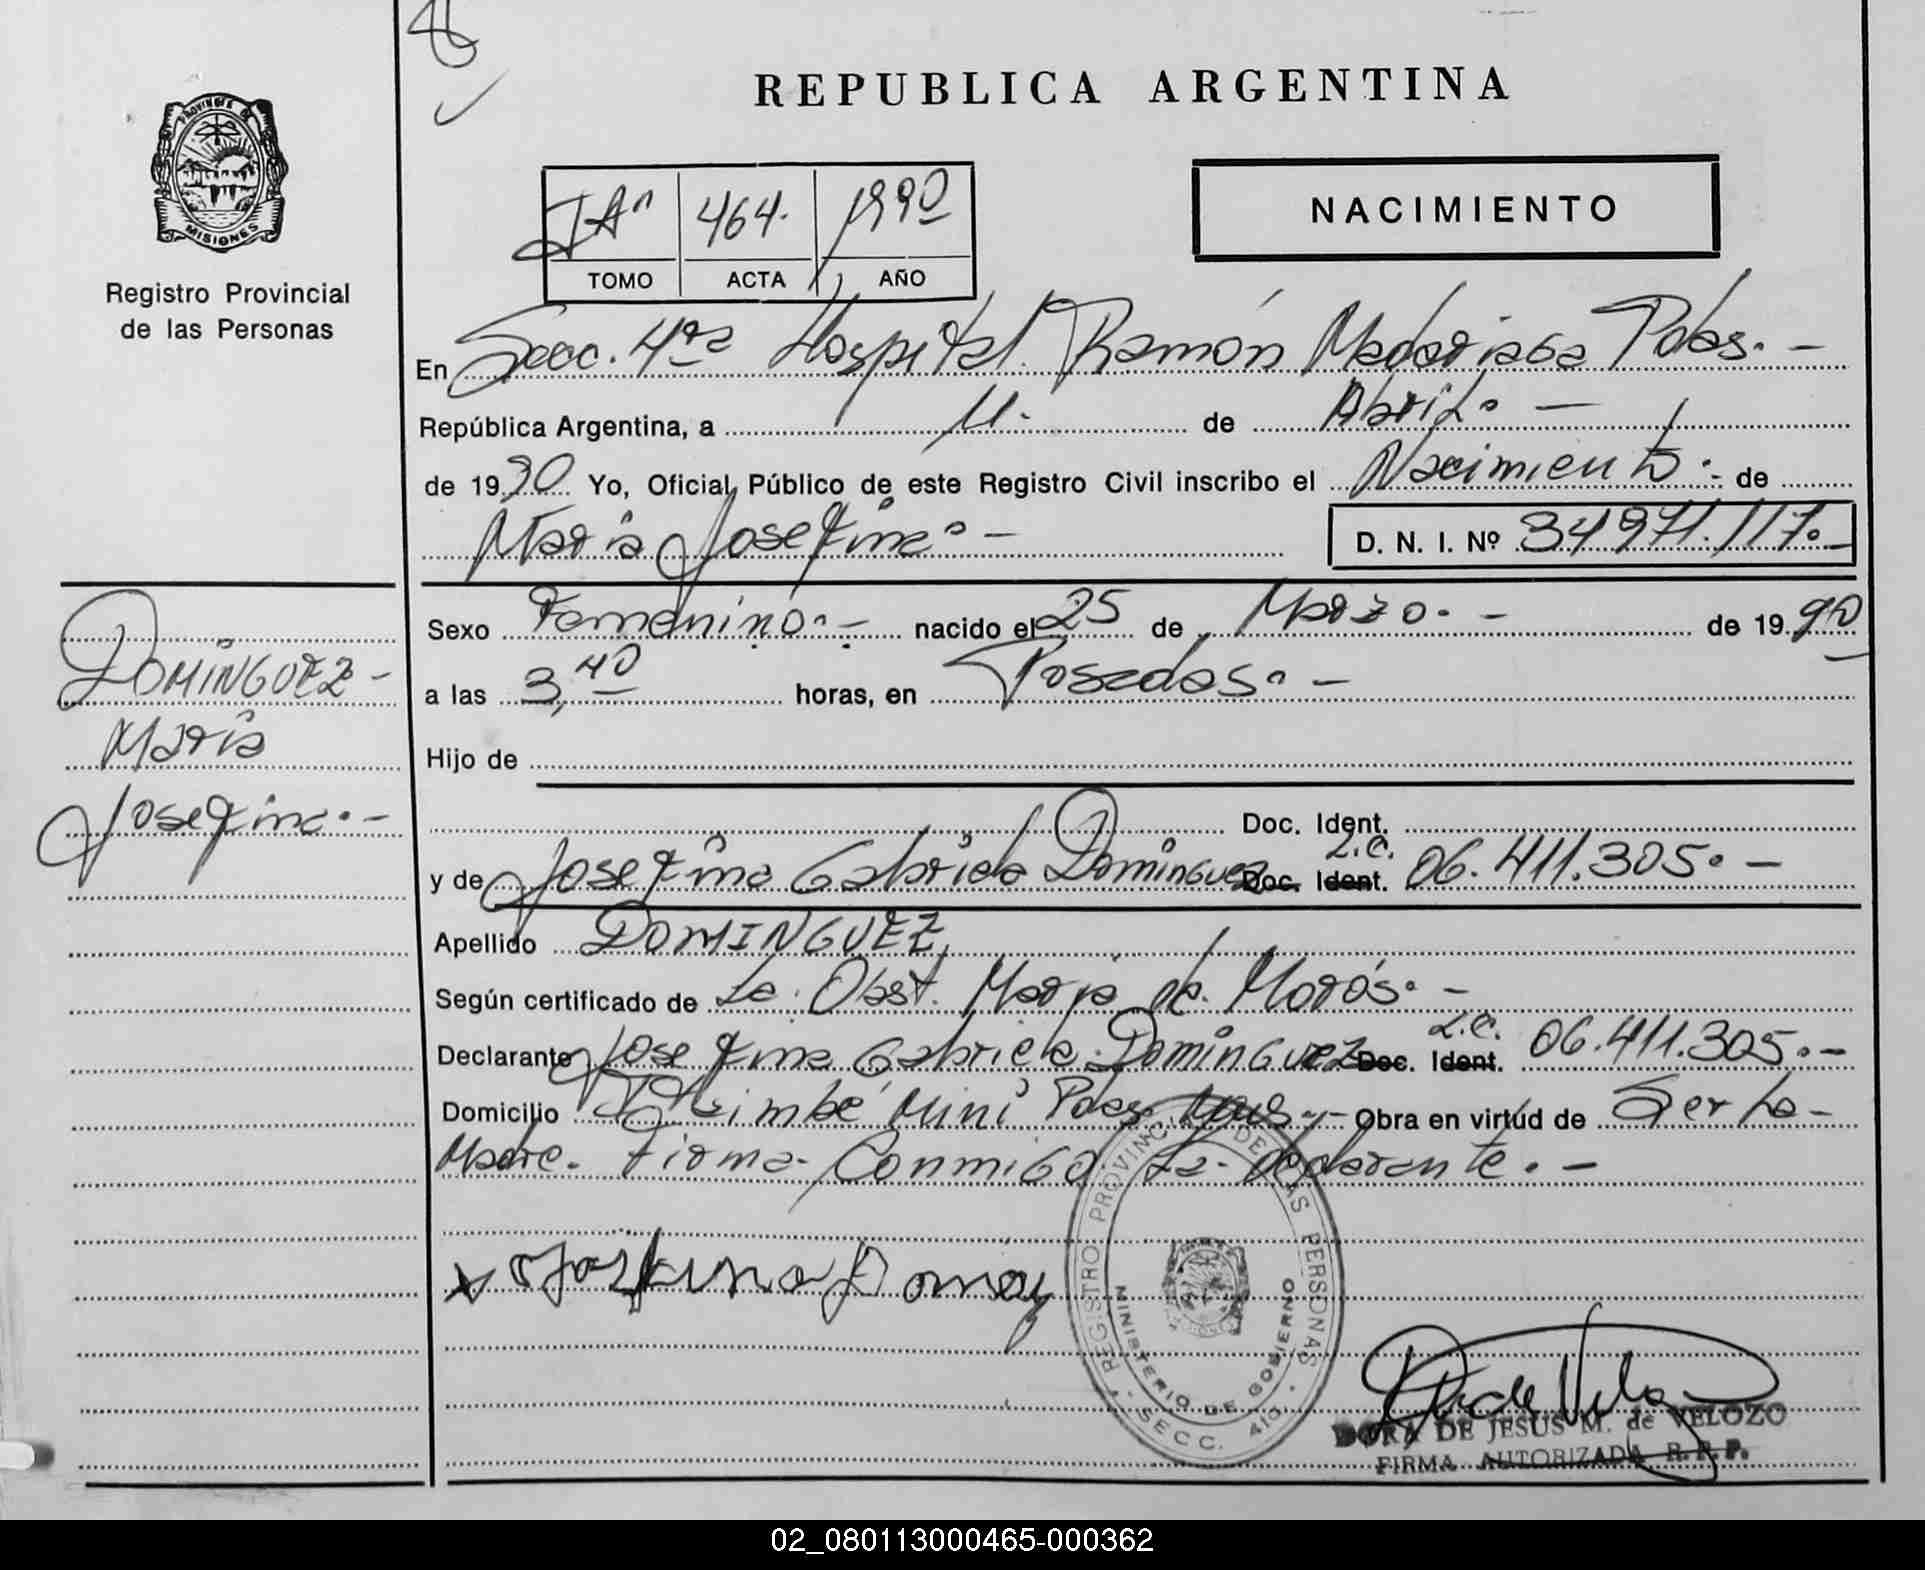 REPUBLICA ARGENTINA
PROVINCIA DE MISIONES
Registro Provincial
de las Personas
464. 1990
TOMO ACTA AÑO
NACIMIENTO
En Secc. 4ta Hospital Ramón Madariaga Pdas. -
República Argentina, a 11. de Abril. -
de 1990 Yo, Oficial Público de este Registro Civil inscribo el Nacimiento.- de
María Josefina. -
D. N. I. Nº 34971.117.-
DOMINGUEZ -
María
Josefina. -
Sexo Femenino.- nacido el 25 de Marzo. - de 1990
a las 3,40 horas, en Posadas. -
Hijo de
Doc. Ident.
y de Josefina Gabriela Dominguez Doc. Ident. L.C. 06.411.305. -
Apellido DOMINGUEZ
Según certificado de La Obst. María de Morós. -
Declarante Josefina Gabriela Dominguez Doc. Ident. L.C. 06.411.305.-
Domicilio Miní Pdas. Obra en virtud de Ser La-
Madre. Firma Conmigo La declarante. -
REGISTRO PROVINCIAL DE LAS PERSONAS
MINISTERIO DE GOBIERNO
SECC. 4ta.
DORA DE JESUS M. de VELOZO
FIRMA AUTORIZADA R.P.P.
02_080113000465-000362